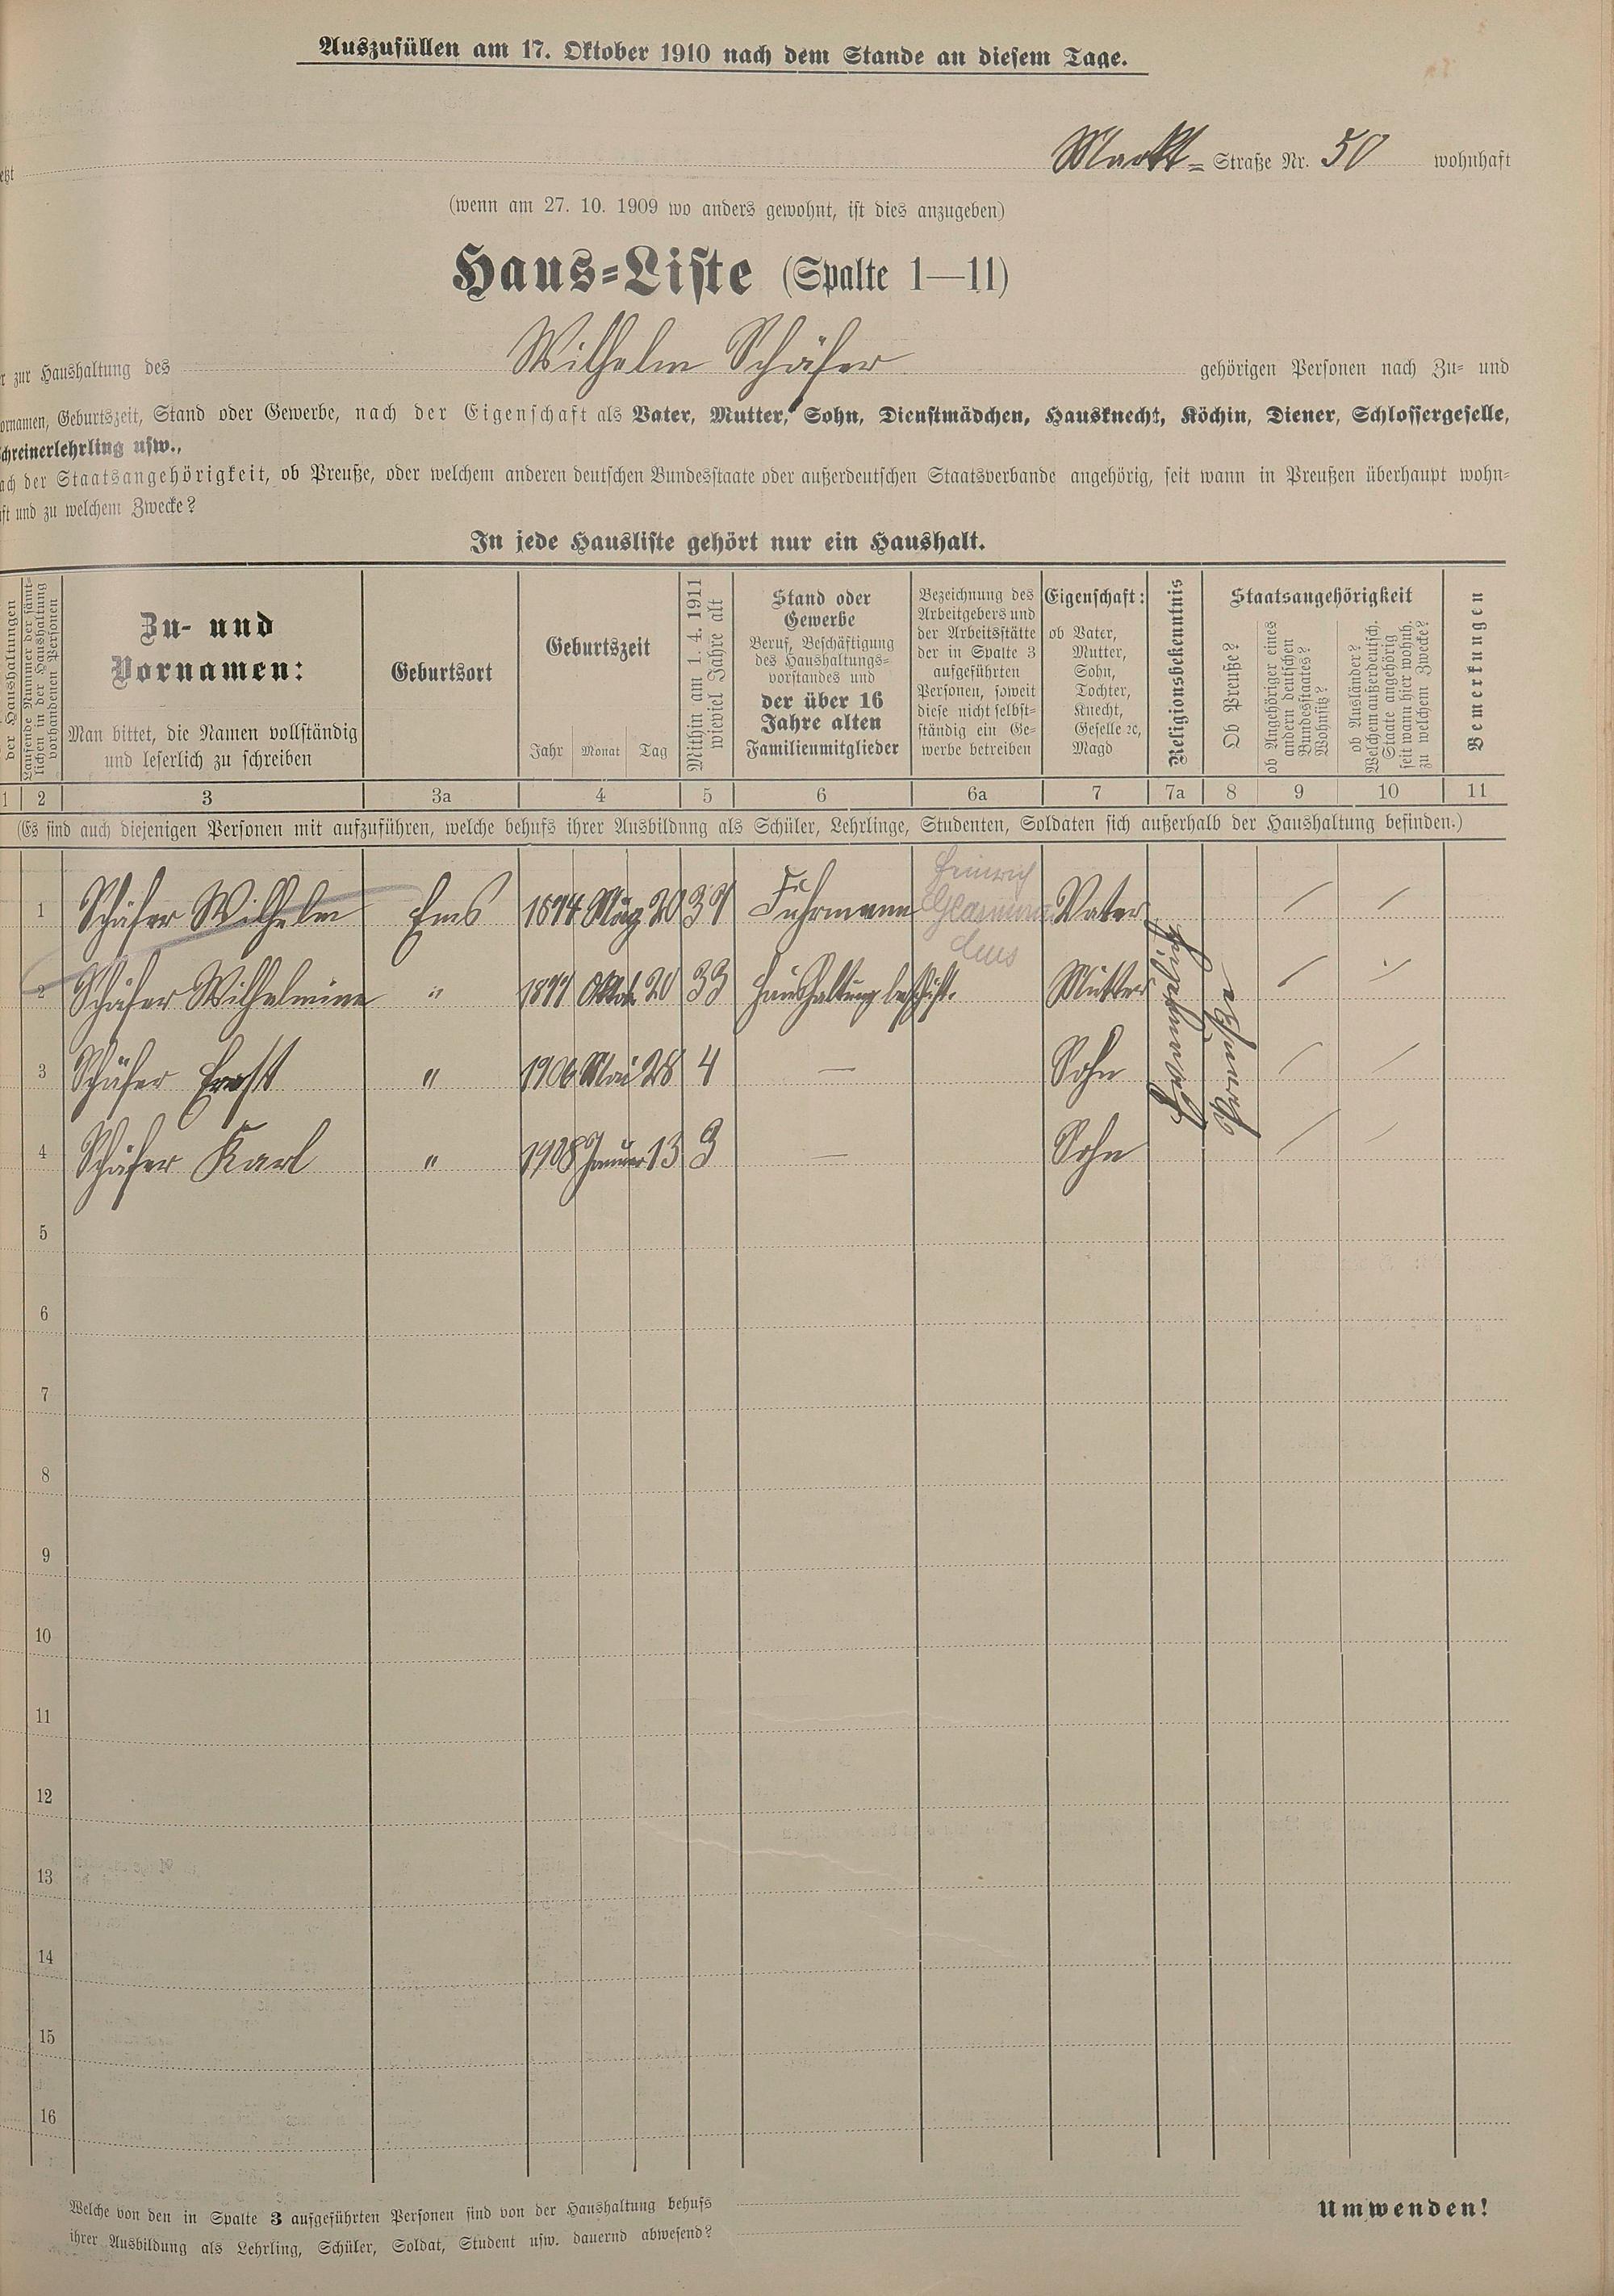 Auszufüllen am 17. Oktober 1910 nach dem Stande an diesem Tage.
Markt- Straße Nr. 50 wohnhaft
(wenn am 27. 10. 1909 wo anders gewohnt, ist dies anzugeben)
Haus-Liste (Spalte 1—11)
zur Haushaltung des Wilhelm Schäfer gehörigen Personen nach Zu- und
ornamen, Geburtszeit, Stand oder Gewerbe, nach der Eigenschaft als Vater, Mutter, Sohn, Dienstmädchen, Hausknecht, Köchin, Diener, Schlossergeselle,
chreinerlehrling usw.,
ach der Staatsangehörigkeit, ob Preuße, oder welchem anderen deutschen Bundesstaate oder außerdeutschen Staatsverbande angehörig, seit wann in Preußen überhaupt wohn-
ft und zu welchem Zwecke?
In jede Hausliste gehört nur ein Haushalt.
der Haushaltungen
Laufende Nummer der sämt-
lichen in der Haushaltung
vorhandenen Personen
Zu- und
Vornamen:
Man bittet, die Namen vollständig
und leserlich zu schreiben
Geburtsort
Geburtszeit
Jahr Monat Tag
Mithin am 1. 4. 1911
wieviel Jahre alt
Stand oder
Gewerbe
Beruf, Beschäftigung
des Haushaltungs-
vorstandes und
der über 16
Jahre alten
Familienmitglieder
Bezeichnung des
Arbeitgebers und
der Arbeitsstätte
der in Spalte 3
aufgeführten
Personen, soweit
diese nicht selbst-
ständig ein Ge-
werbe betreiben
Eigenschaft:
ob Vater,
Mutter,
Sohn,
Tochter,
Knecht,
Geselle ꝛc,
Magd
Religionsbekenntnis
Staatsangehörigkeit
Ob Preuße?
ob Angehöriger eines
andern deutschen
Bundesstaates?
Wohnsitz?
ob Ausländer?
Welchem außerdeutsch.
Staate angehörig
seit wann hier wohnh.
zu welchem Zwecke?
Bemerkungen
1 2 3 3a 4 5 6 6a 7 7a 8 9 10 11
(Es sind auch diejenigen Personen mit aufzuführen, welche behufs ihrer Ausbildung als Schüler, Lehrlinge, Studenten, Soldaten sich außerhalb der Haushaltung befinden.)
Heinrich
1 Schäfer Wilhelm Ems 1874 März 20 37 Fuhrmann Vater
Ems
2 Schäfer Wilhelmine " 1877 Oktob. 20 33 Haushaltung beschäft. Mutter
3 Schäfer Ernst " 1906 Mai 28 4 — Sohn
4 Schäfer Karl " 1908 Januar 13 3 — Sohn
5
6
7
8
9
10
11
12
13
14
15
16
Welche von den in Spalte 3 aufgeführten Personen sind von der Haushaltung behufs
ihrer Ausbildung als Lehrling, Schüler, Soldat, Student usw. dauernd abwesend?
Umwenden!